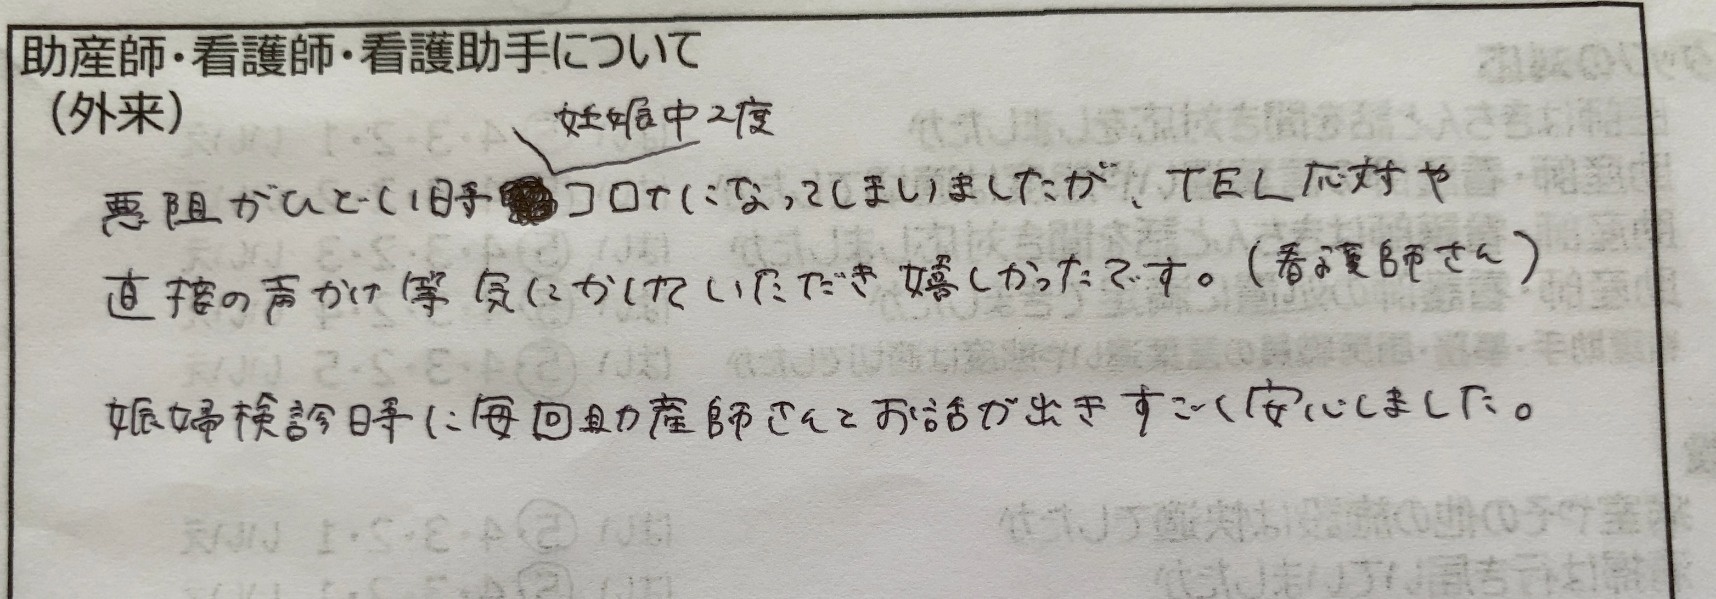 助産師・看護師・看護助手について
（外来）
妊娠中2度
悪阻がひどい時コロナになってしまいましたが、TEL応対や
直接の声かけ等気にかけていただき嬉しかったです。（看護師さん）
妊婦検診時に毎回助産師さんとお話が出きすごく安心しました。